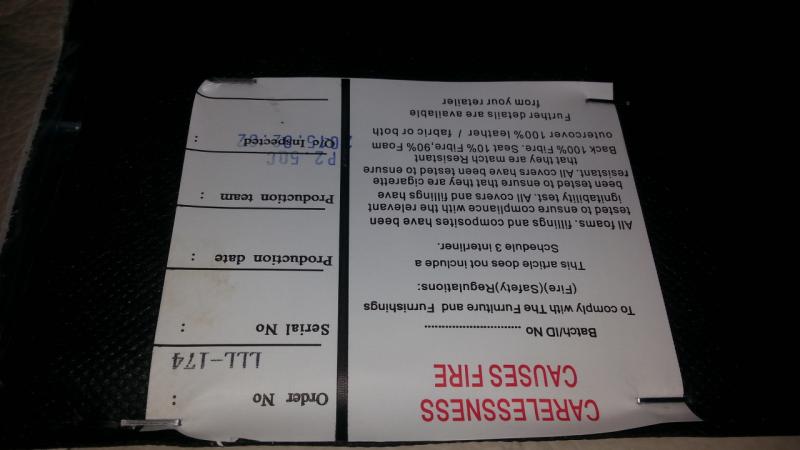 CARELESSNESS
CAUSES FIRE
Batch/ID No ..............................
To comply with The Furniture and Furnishings
(Fire)(Safety)Regulations:
This article does not include a
Schedule 3 interliner.
All foams. fillings and composites have been
tested to ensure compliance with the relevant
ignitability test. All covers and fillings have
been tested to ensure that they are cigarette
resistant. All covers have been tested to ensure
that they are match Resistant
Back 100% Fibre. Seat 10% Fibre,90% Foam
outercover 100% leather / fabric or both
Further details are available
from your retailer
Order No :
LLL-174
Serial No :
Production date :
Production team :
P2.50C
Q/c Inspected :